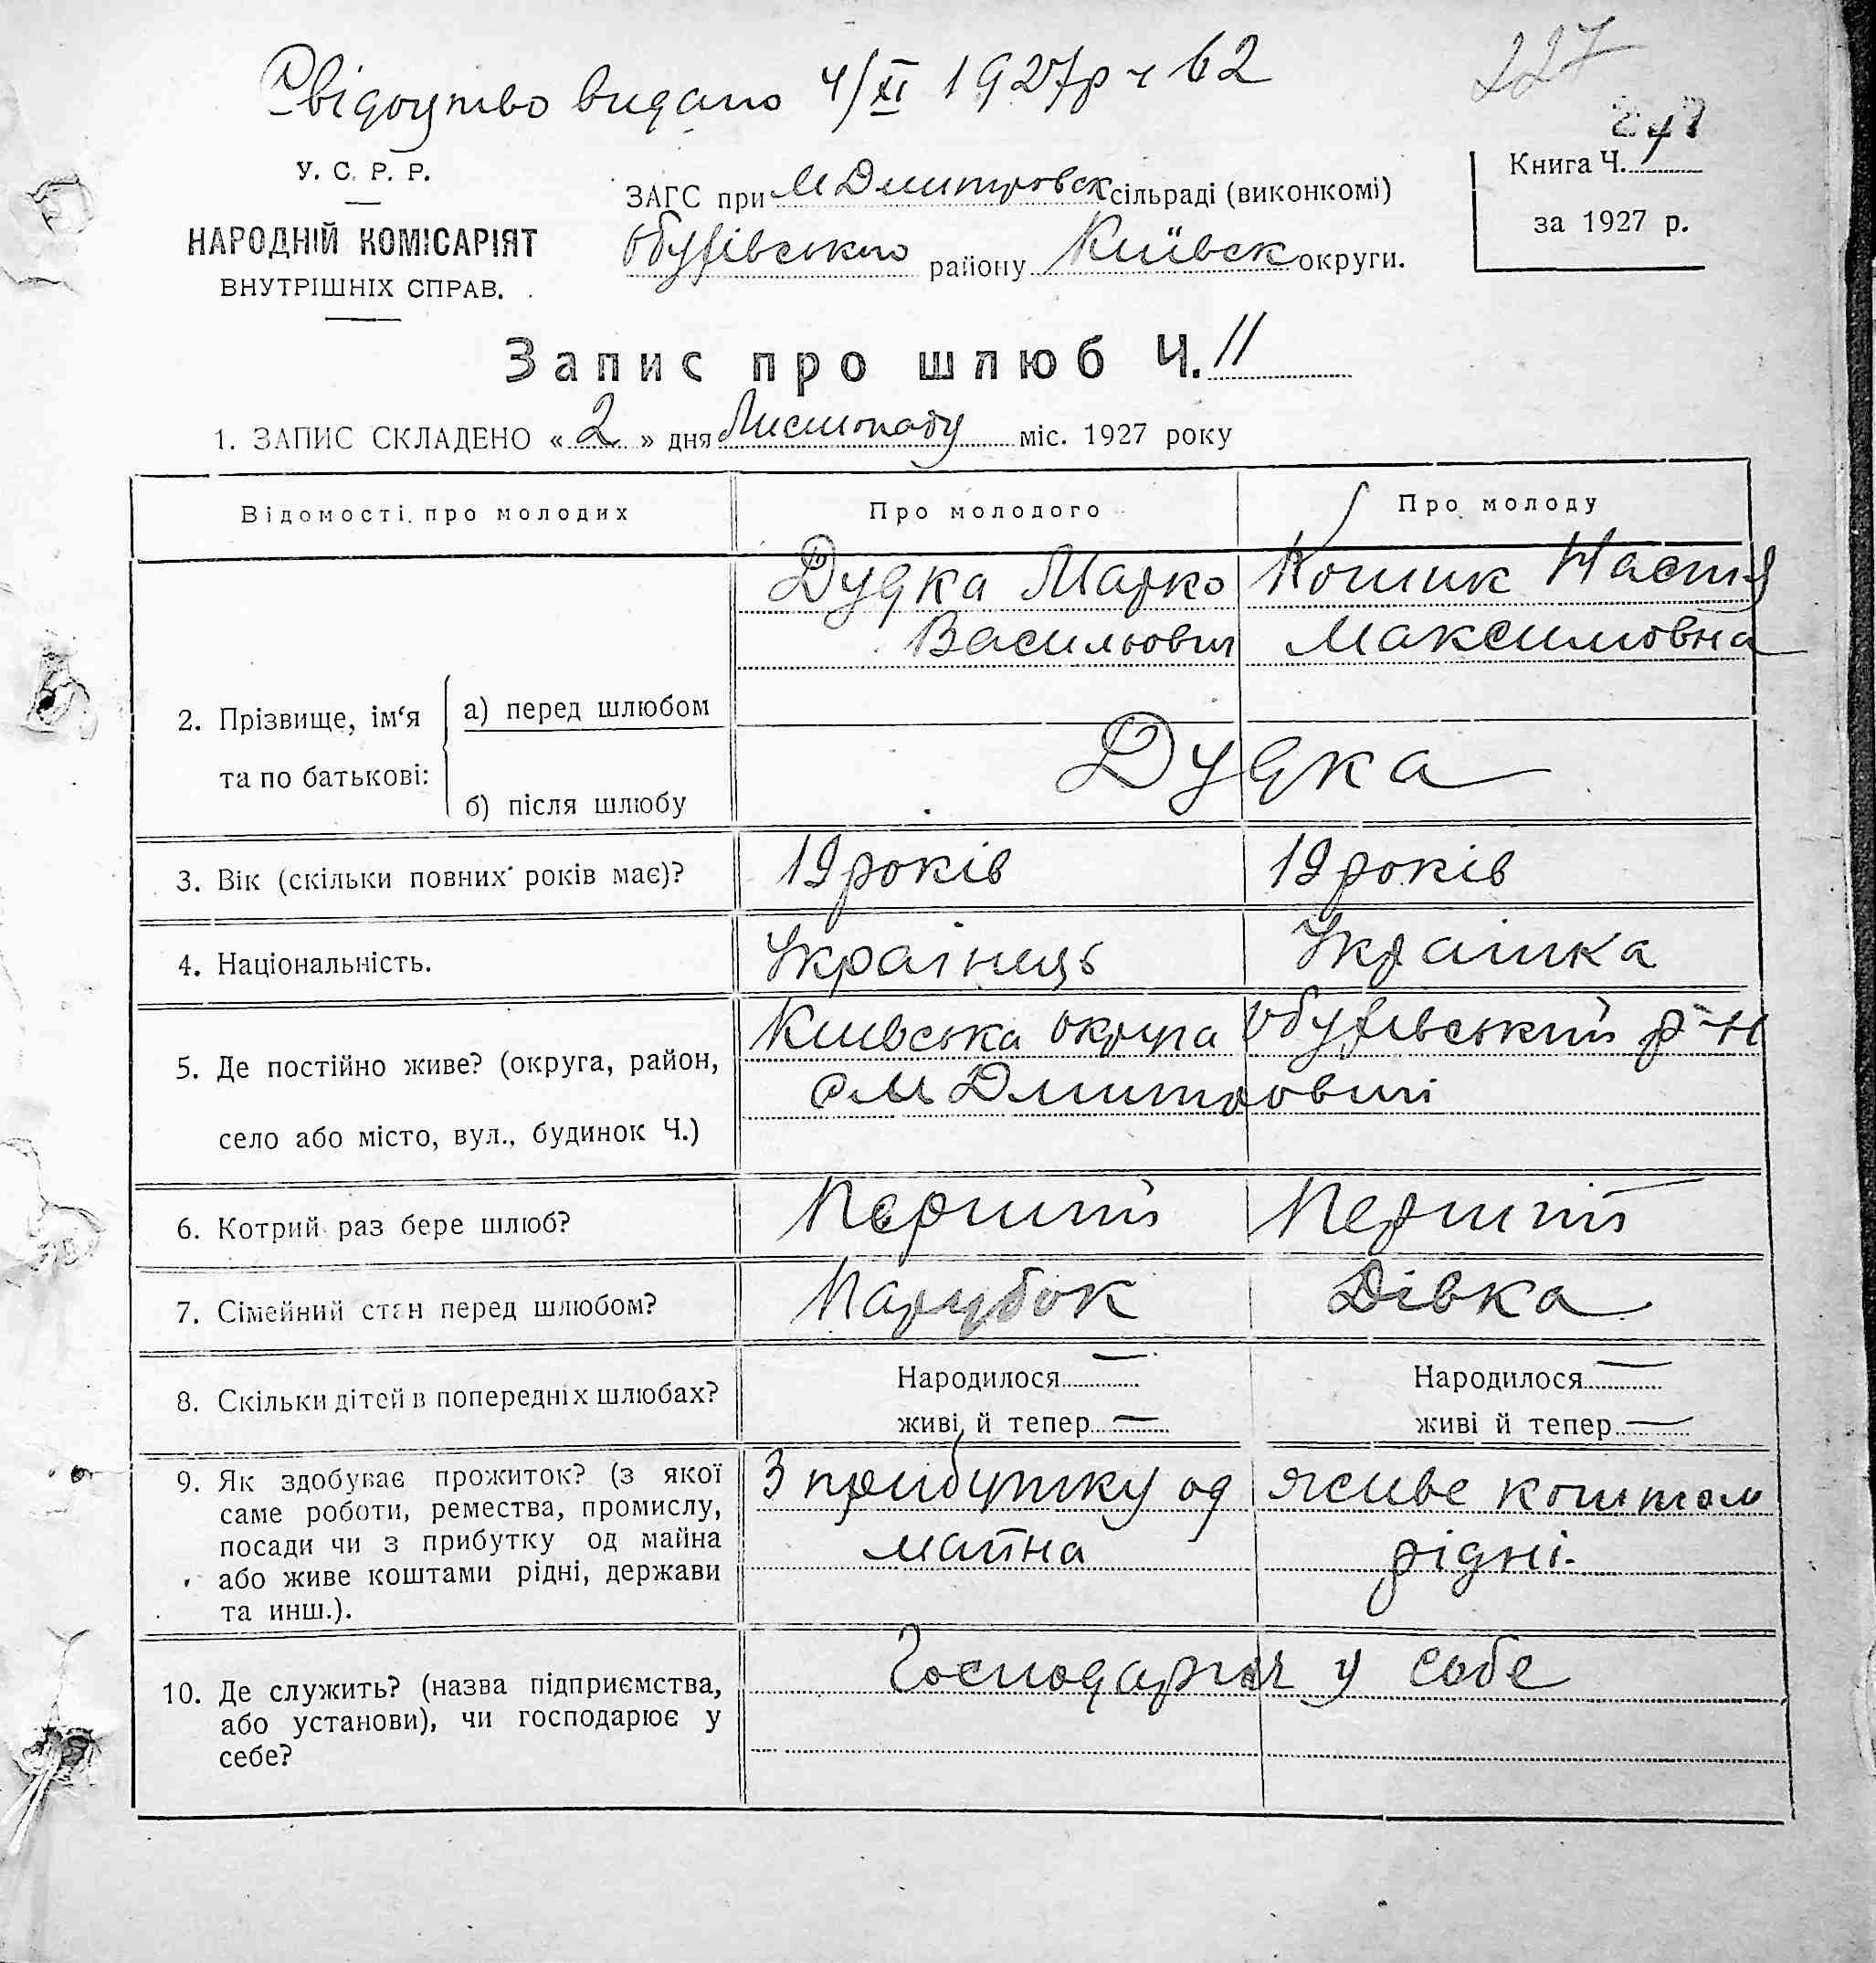 Свідоцтво видано 4/XI 1927р ч 62
227
У. С. Р. Р.
НАРОДНІЙ КОМІСАРІЯТ
ВНУТРІШНІХ СПРАВ.
ЗАГС при М Дмитровск сільраді (виконкомі)
Обухівського району Київськ округи.
Книга Ч.
за 1927 р.
Запис про шлюб Ч. 11
1. ЗАПИС СКЛАДЕНО «2» дня Листопаду міс. 1927 року
Відомості про молодих
Про молодого
Про молоду
2. Прізвище, ім‘я та по батькові:
а) перед шлюбом
Дудка Марко
Васильович
Кошик Настя
Максимовна
б) після шлюбу
Дудка
3. Вік (скільки повних років має)?
19 років
19 років
4. Національність.
Українець
Українка
5. Де постійно живе? (округа, район,
село або місто, вул., будинок Ч.)
Київська округа Обухівський р-н
с М Дмитровичі
6. Котрий раз бере шлюб?
Перший
Перший
7. Сімейний стан перед шлюбом?
Парубок
Дівка
8. Скільки дітей в попередніх шлюбах?
Народилося —
живі й тепер —
Народилося —
живі й тепер —
9. Як здобуває прожиток? (з якої
саме роботи, ремества, промислу,
посади чи з прибутку од майна
або живе коштами рідні, держави
та инш.).
З прибутку од
майна
живе коштом
рідні.
10. Де служить? (назва підприємства,
або установи), чи господарює у
себе?
у себе